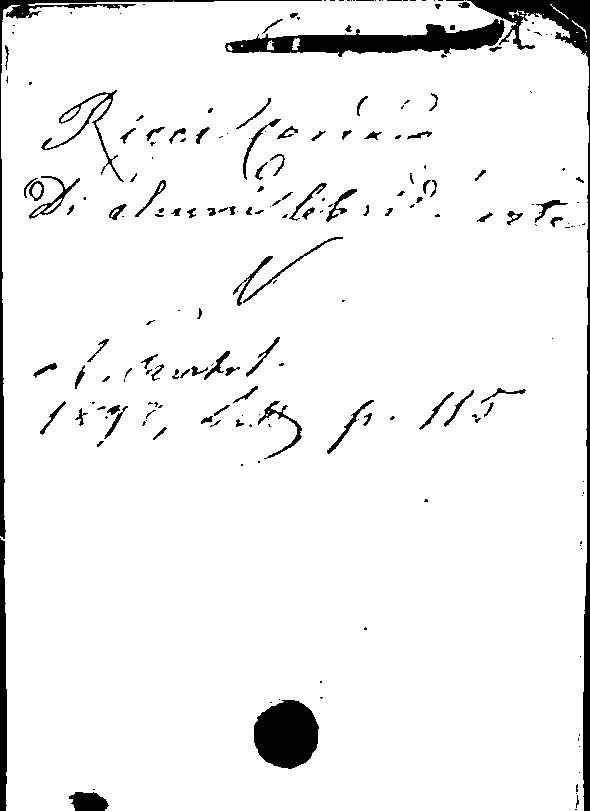 Ricci Corrado
Di alcuni libri d. arte
V
1898, p. 115